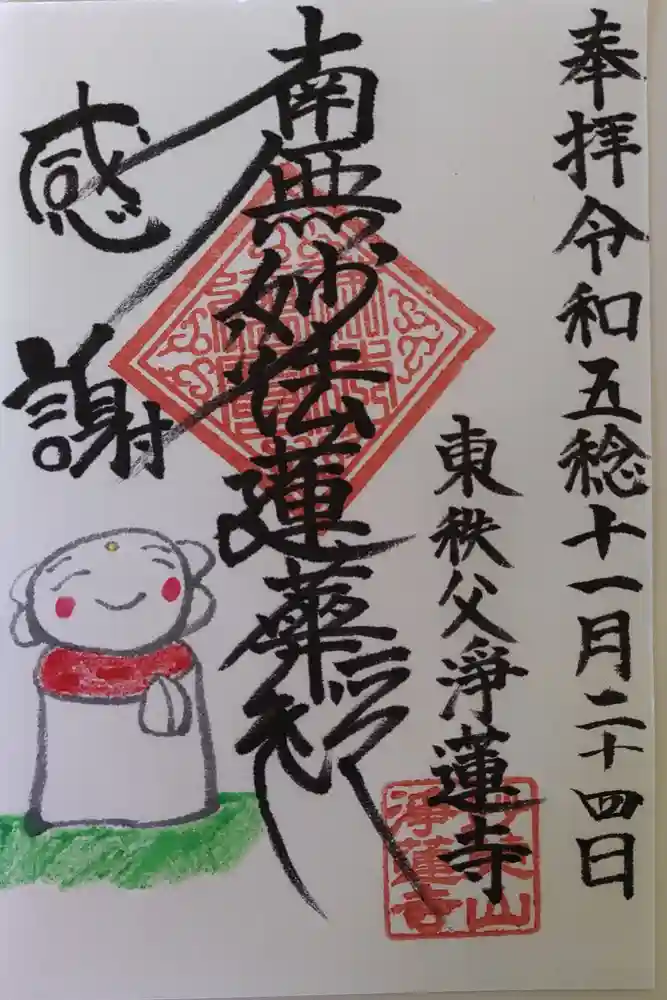 奉拝令和五稔十一月二十四日
東秩父淨蓮寺
南無妙法蓮華経
感謝